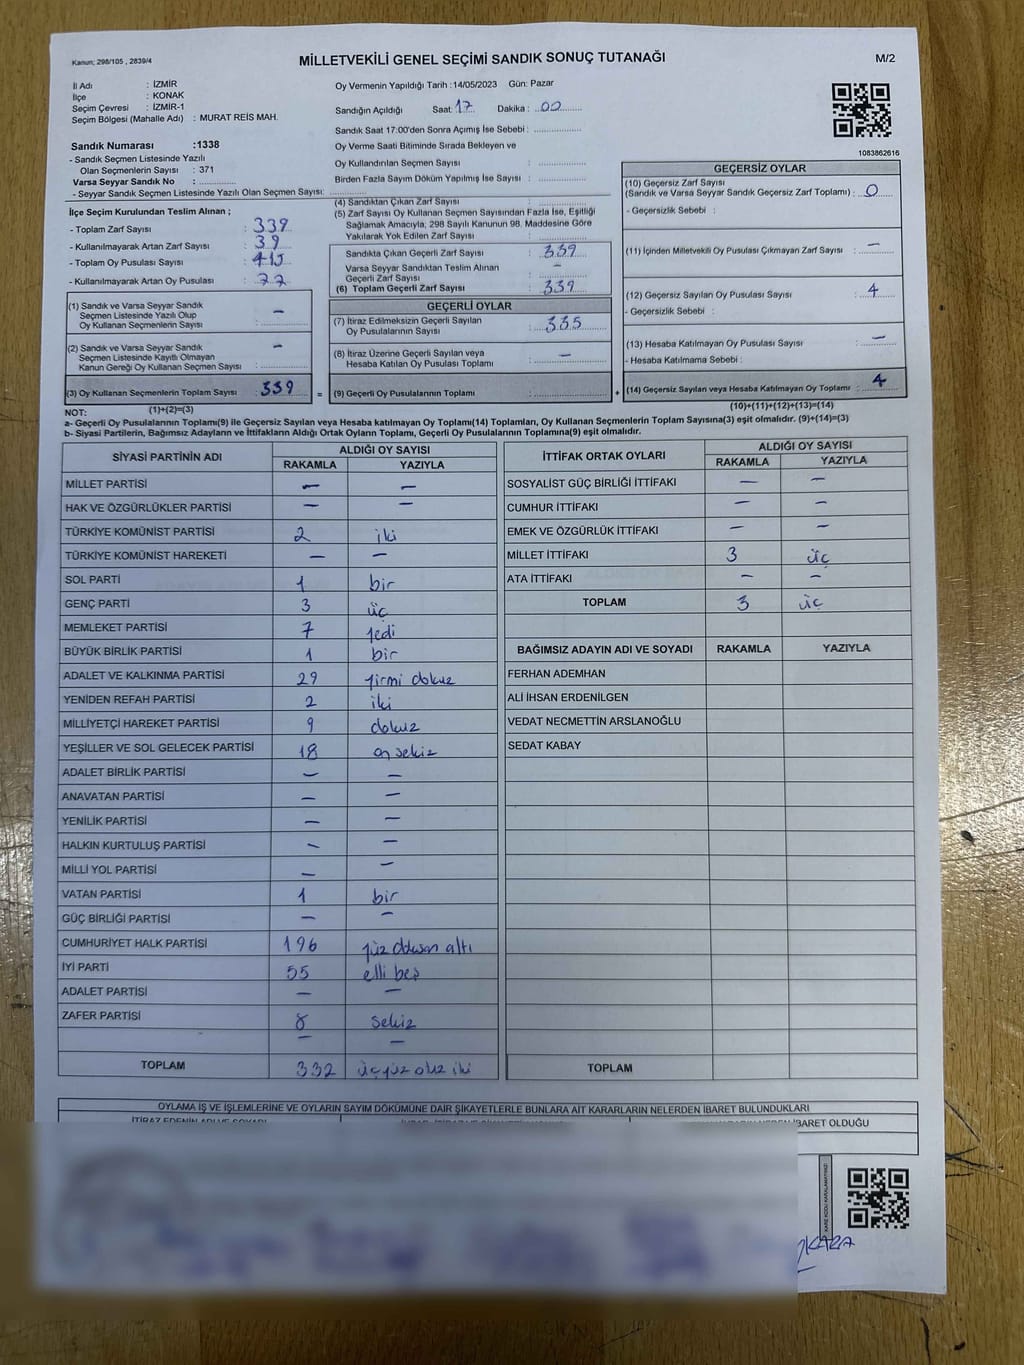 Kanun; 298/105 , 2839/4
MİLLETVEKİLİ GENEL SEÇİMİ SANDIK SONUÇ TUTANAĞI
M/2
İl Adı : İZMİR
İlçe : KONAK
Seçim Çevresi : İZMİR-1
Seçim Bölgesi (Mahalle Adı) : MURAT REİS MAH.
Oy Vermenin Yapıldığı Tarih :14/05/2023 Gün: Pazar
Sandığın Açıldığı Saat: 17 Dakika : 00
Sandık Saat 17:00'den Sonra Açımış İse Sebebi :
Oy Verme Saati Bitiminde Sırada Bekleyen ve
Oy Kullandırılan Seçmen Sayısı :
Birden Fazla Sayım Döküm Yapılmış İse Sayısı :
1083862616
Sandık Numarası :1338
- Sandık Seçmen Listesinde Yazılı
Olan Seçmenlerin Sayısı : 371
Varsa Seyyar Sandık No :
- Seyyar Sandık Seçmen Listesinde Yazılı Olan Seçmen Sayısı:
İlçe Seçim Kurulundan Teslim Alınan ;
- Toplam Zarf Sayısı : 339
- Kullanılmayarak Artan Zarf Sayısı : 39
- Toplam Oy Pusulası Sayısı : 415
- Kullanılmayarak Artan Oy Pusulası : 77
(1) Sandık ve Varsa Seyyar Sandık
Seçmen Listesinde Yazılı Olup
Oy Kullanan Seçmenlerin Sayısı : -
(2) Sandık ve Varsa Seyyar Sandık
Seçmen Listesinde Kayıtlı Olmayan
Kanun Gereği Oy Kullanan Seçmen Sayısı : -
(3) Oy Kullanan Seçmenlerin Toplam Sayısı : 339
=
(1)+(2)=(3)
(4) Sandıktan Çıkan Zarf Sayısı :
(5) Zarf Sayısı Oy Kullanan Seçmen Sayısından Fazla İse, Eşitliği
Sağlamak Amacıyla; 298 Sayılı Kanunun 98. Maddesine Göre
Yakılarak Yok Edilen Zarf Sayısı :
Sandıkta Çıkan Geçerli Zarf Sayısı : 339
Varsa Seyyar Sandıktan Teslim Alınan
Geçerli Zarf Sayısı : -
(6) Toplam Geçerli Zarf Sayısı : 339
GEÇERLİ OYLAR
(7) İtiraz Edilmeksizin Geçerli Sayılan
Oy Pusulalarının Sayısı : 335
(8) İtiraz Üzerine Geçerli Sayılan veya
Hesaba Katılan Oy Pusulası Toplamı : -
(9) Geçerli Oy Pusulalarının Toplamı :
+
GEÇERSİZ OYLAR
(10) Geçersiz Zarf Sayısı
(Sandık ve Varsa Seyyar Sandık Geçersiz Zarf Toplamı) : 0
- Geçersizlik Sebebi :
(11) İçinden Milletvekili Oy Pusulası Çıkmayan Zarf Sayısı : -
(12) Geçersiz Sayılan Oy Pusulası Sayısı : 4
- Geçersizlik Sebebi :
(13) Hesaba Katılmayan Oy Pusulası Sayısı : -
- Hesaba Katılmama Sebebi :
(14) Geçersiz Sayılan veya Hesaba Katılmayan Oy Toplamı : 4
(10)+(11)+(12)+(13)=(14)
NOT:
a- Geçerli Oy Pusulalarının Toplamı(9) ile Geçersiz Sayılan veya Hesaba katılmayan Oy Toplamı(14) Toplamları, Oy Kullanan Seçmenlerin Toplam Sayısına(3) eşit olmalıdır. (9)+(14)=(3)
b- Siyasi Partilerin, Bağımsız Adayların ve İttifakların Aldığı Ortak Oyların Toplamı, Geçerli Oy Pusulalarının Toplamına(9) eşit olmalıdır.
SİYASİ PARTİNİN ADI ALDIĞI OY SAYISI
RAKAMLA YAZIYLA
MİLLET PARTİSİ - -
HAK VE ÖZGÜRLÜKLER PARTİSİ - -
TÜRKİYE KOMÜNİST PARTİSİ 2 iki
TÜRKİYE KOMÜNİST HAREKETİ - -
SOL PARTİ 1 bir
GENÇ PARTİ 3 üç
MEMLEKET PARTİSİ 7 yedi
BÜYÜK BİRLİK PARTİSİ 1 bir
ADALET VE KALKINMA PARTİSİ 29 yirmi dokuz
YENİDEN REFAH PARTİSİ 2 iki
MİLLİYETÇİ HAREKET PARTİSİ 9 dokuz
YEŞİLLER VE SOL GELECEK PARTİSİ 18 on sekiz
ADALET BİRLİK PARTİSİ - -
ANAVATAN PARTİSİ - -
YENİLİK PARTİSİ - -
HALKIN KURTULUŞ PARTİSİ - -
MİLLİ YOL PARTİSİ - -
VATAN PARTİSİ 1 bir
GÜÇ BİRLİĞİ PARTİSİ - -
CUMHURİYET HALK PARTİSİ 196 yüz doksan altı
İYİ PARTİ 55 elli beş
ADALET PARTİSİ - -
ZAFER PARTİSİ 8 sekiz
- -
TOPLAM 332 üçyüz otuz iki
İTTİFAK ORTAK OYLARI ALDIĞI OY SAYISI
RAKAMLA YAZIYLA
SOSYALİST GÜÇ BİRLİĞİ İTTİFAKI - -
CUMHUR İTTİFAKI - -
EMEK VE ÖZGÜRLÜK İTTİFAKI - -
MİLLET İTTİFAKI 3 üç
ATA İTTİFAKI - -
TOPLAM 3 üç
BAĞIMSIZ ADAYIN ADI VE SOYADI RAKAMLA YAZIYLA
FERHAN ADEMHAN
ALİ İHSAN ERDENİLGEN
VEDAT NECMETTİN ARSLANOĞLU
SEDAT KABAY
TOPLAM
OYLAMA İŞ VE İŞLEMLERİNE VE OYLARIN SAYIM DÖKÜMÜNE DAİR ŞİKAYETLERLE BUNLARA AİT KARARLARIN NELERDEN İBARET BULUNDUKLARI
İTİRAZ EDENİN ADI VE SOYADI
İBARET OLDUĞU